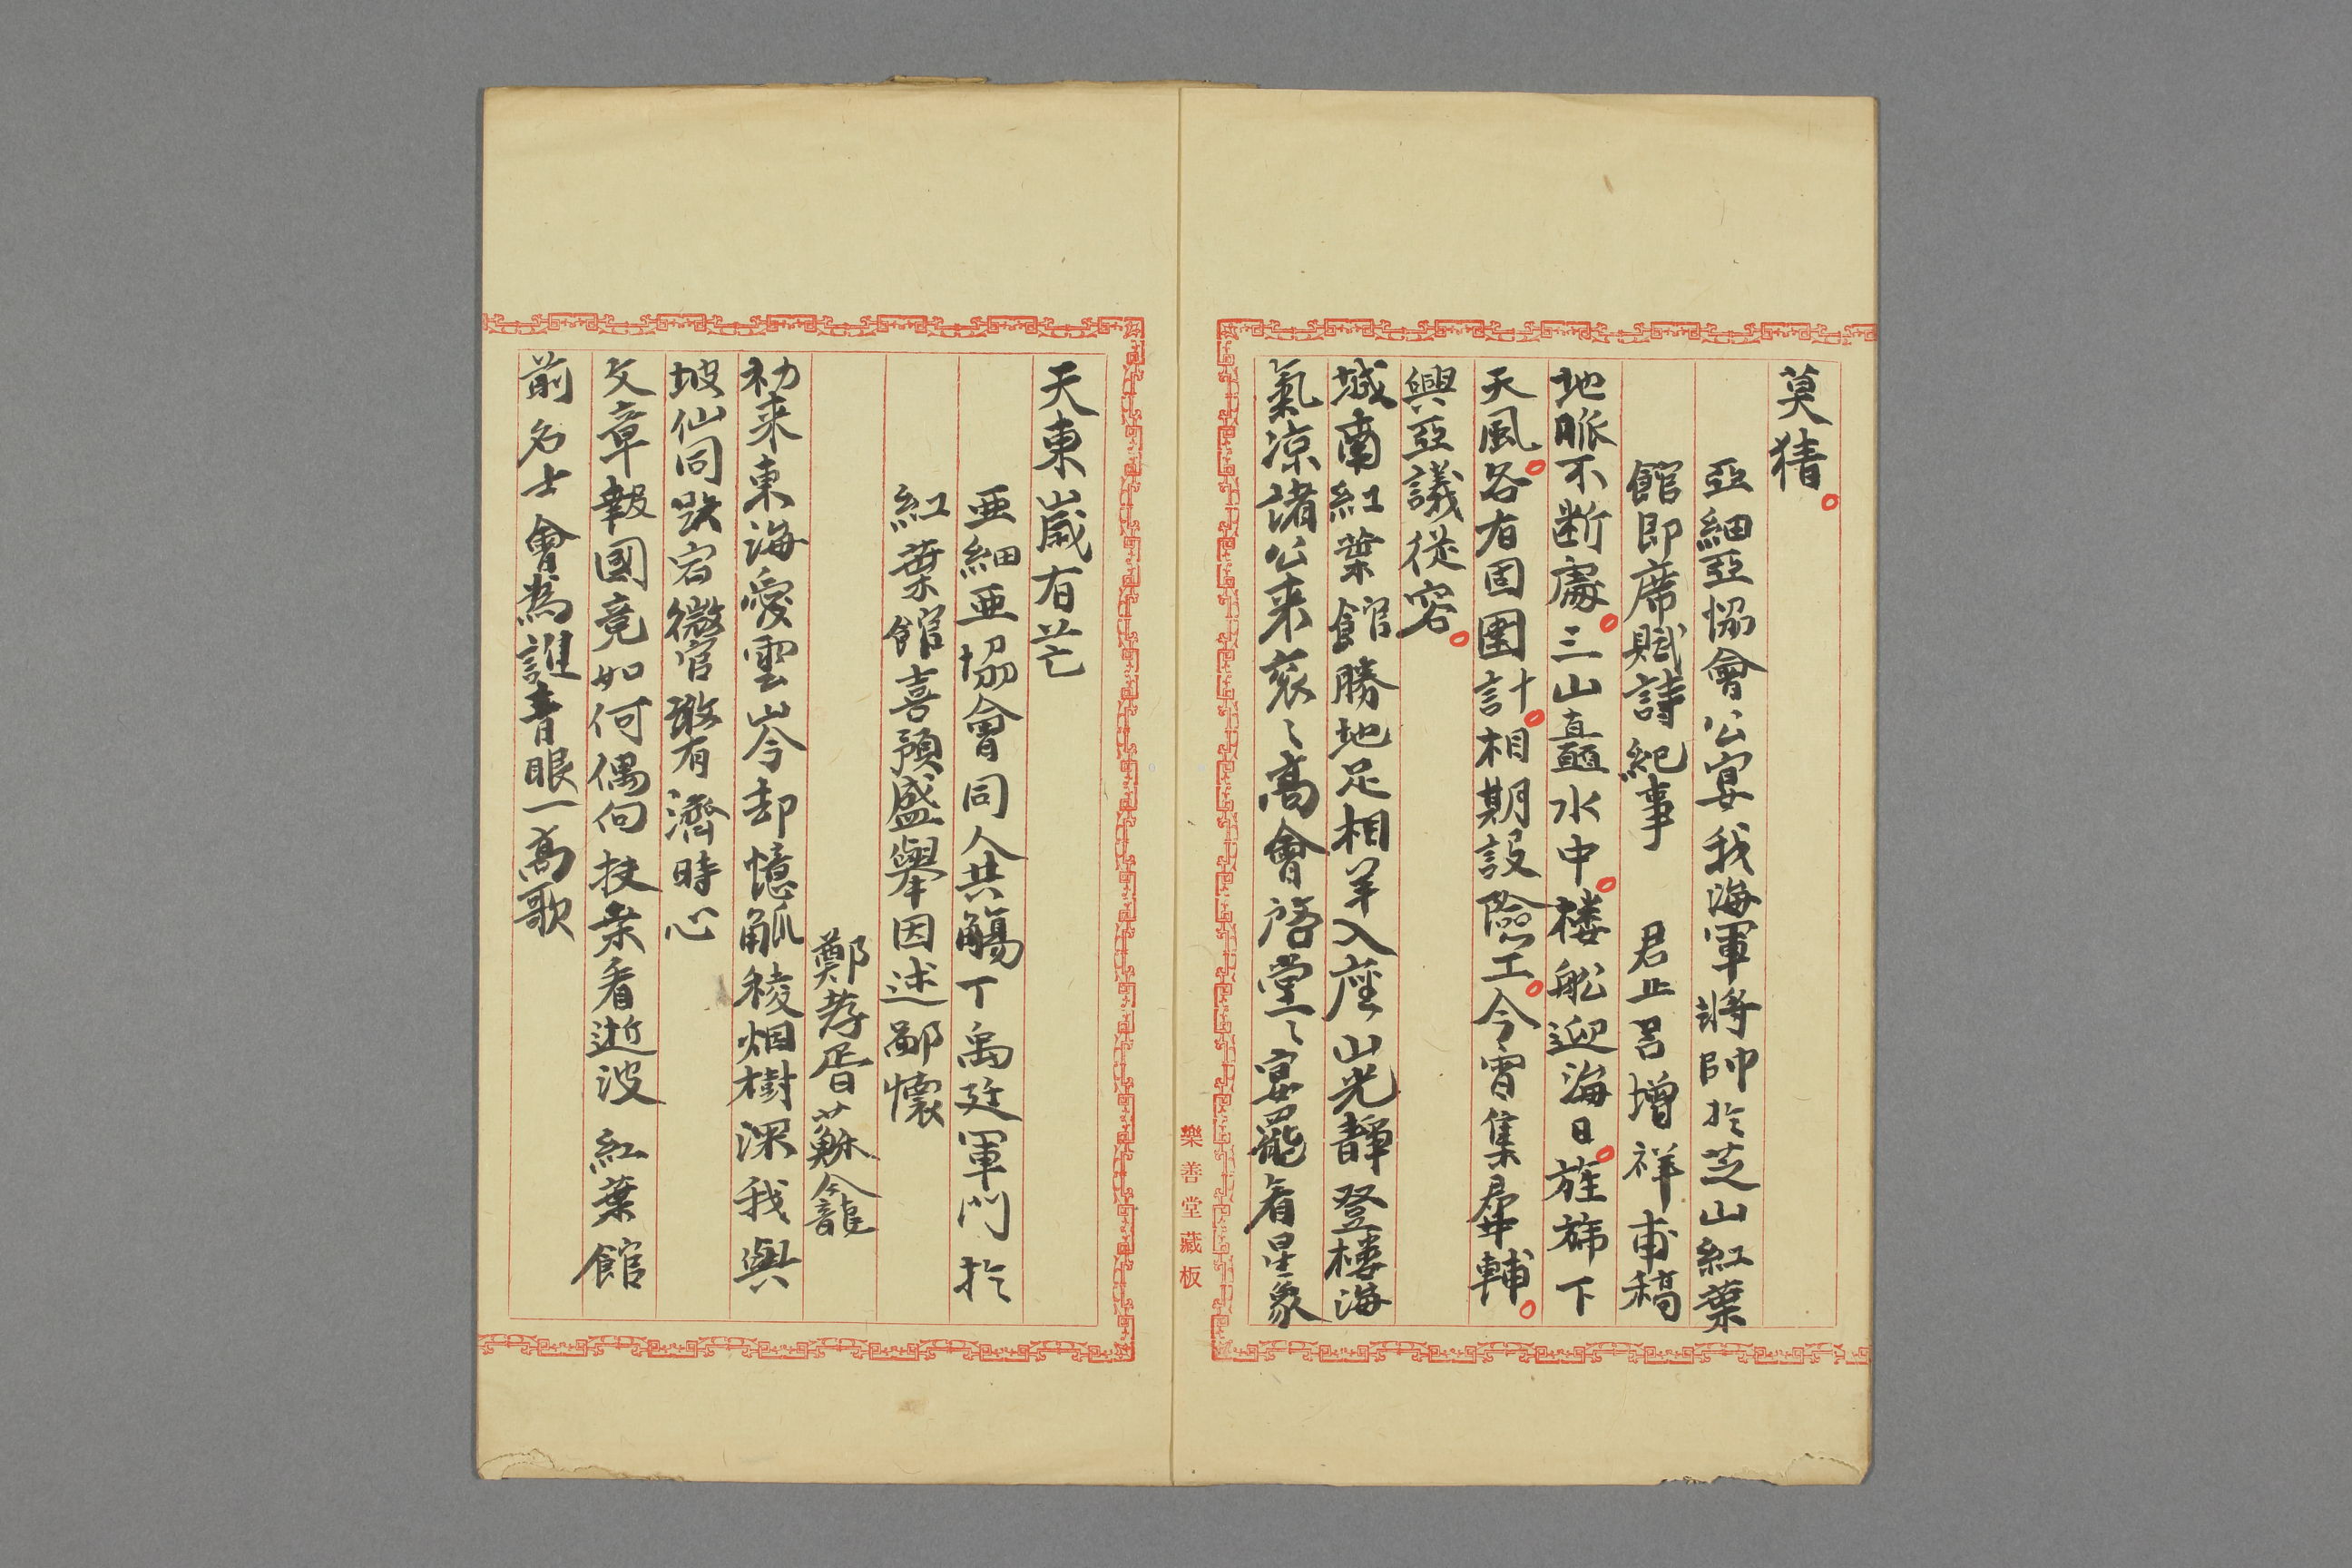 莫猜。
亞細亞協會公宴我海軍將帥於芝山紅葉
館即席賦詩紀事　君止呂增祥甫稿
地脈不断處。三山矗水中。楼船迎海日。旌旆下
天風。各有固圉計。相期設險工。今宵集羣輔。
興亞議從容。
城南紅葉館勝地足相羊入座山光靜登楼海
氣涼諸公来衮〻高會啓堂〻宴罷看星象
天東歲有芒
亜細亜協會同人共觴丁禹廷軍門於
紅葉館喜預盛舉因述鄙懷
鄭孝胥蘇龕
初来東海愛雲岑却憶觚稜烟樹深我與
坡仙同跌宕微官敢有濟時心
文章報國竟如何偶向扶桒看逝波紅葉館
前名士會為誰青眼一高歌
樂善堂藏板